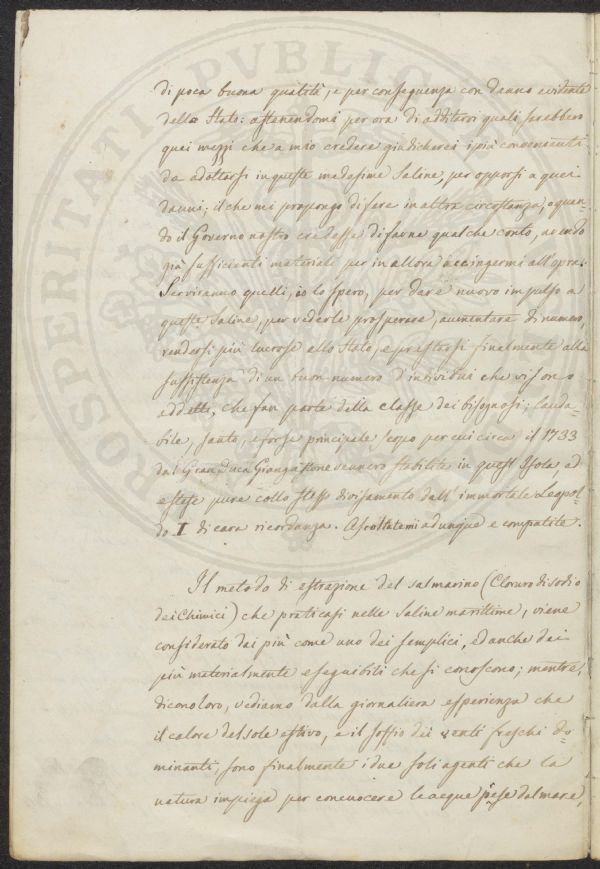 di poca buona qualità, e per conseguenza con danno evidente
dello Stato: astenendomi per ora di additarvi quali sarebbero
quei mezzi che a mio credere giudicherei i più convenienti
da adottarsi in queste medesime Saline, per opporsi a quei
danni; il che mi propongo di fare in altra circostanza, o quan-
do il Governo nostro credesse di farne qualche conto, avendo
già sufficienti materiali per in allora accingermi all'opra.
Serviranno quelli, io lo spero, per dare nuovo impulso a
queste Saline, per vederle prosperare, aumentare di numero,
rendersi più lucrose allo Stato, e prestarsi finalmente alla
sussistenza di un buon numero d'individui che vi sono
addetti, che fan parte della classe dei bisognosi; lauda-
bile, santo, e forse principale scopo per cui circa il 1733
dal Gran Duca Giangastone vennero stabilite in quest'Isola ed
estese pure collo stesso divisamento dall'immortale Leopol-
do I di cara ricordanza. Ascoltatemi adunque e compatite.
Il metodo di estrazione del sal marino (Cloruro di sodio
dei Chimici) che praticasi nelle Saline marittime, viene
considerato dai più come uno dei semplici, ed anche dei
più materialmente eseguibili che si conoscono; mentre,
dicono loro, vediamo dalla giornaliera esperienza che
il calore del sole estivo, e il soffio dei venti freschi do-
minanti, sono finalmente i due soli agenti che la
natura impiega per concuocere le acque prese dal mare,
PROSPERITATI PVBLIC